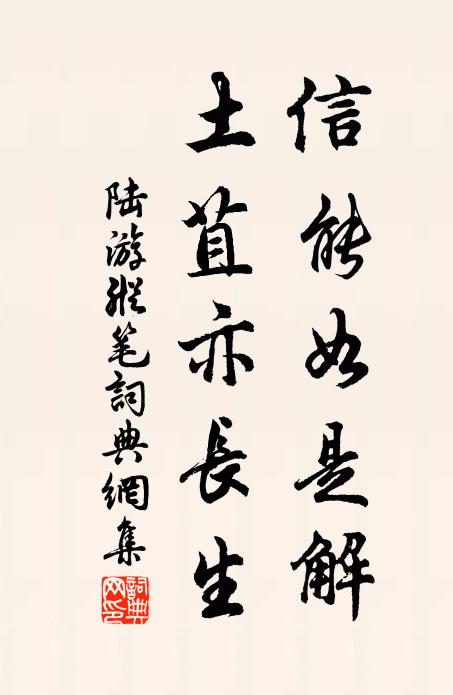 信能如是解
土苴亦長生
陆游縱笔詞典網集
詞典网印